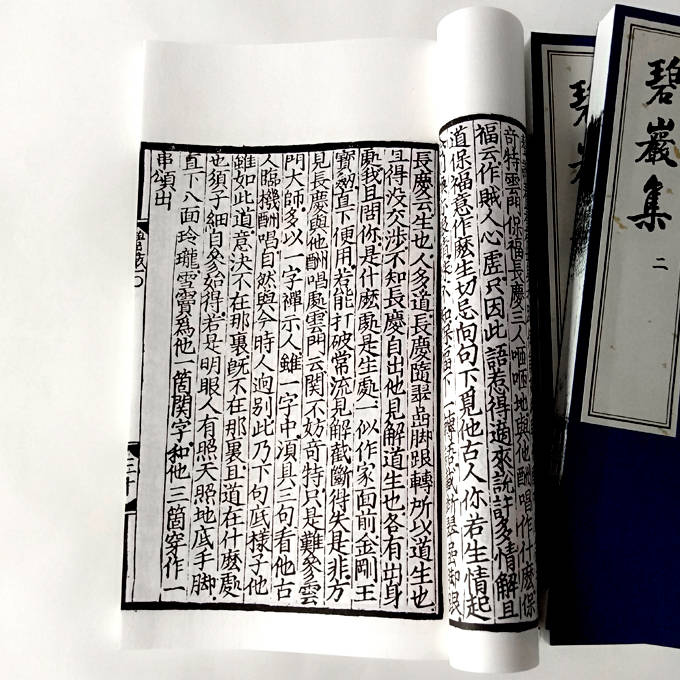 奇特雲門保福長慶三人咂咂地與他酬唱作什麼保
福云作賊人心虛只因此語惹得適來說許多情解且
道保福意作麼生切忌向句下覓他古人你若生情起
長慶云生也人多道長慶隨翠嵓脚跟轉所以道生也
且得沒交涉不知長慶自出他見解道生也各有出身
處我且問你是什麼處是生處一似作家面前金剛王
寶劒直下便用若能打破常流見解截斷得失是非方
見長慶與他酬唱處雲門云関不妨奇特只是難參雲
門大師多以一字禪示人雖一字中須具三句看他古
人臨機酬唱自然與今時人逈別此乃下句底樣子他
雖如此道意決不在那裏旣不在那裏且道在什麼處
也須子細自參始得若是明眼人有照天照地底手脚
直下八面玲瓏雪竇為他一箇関字和他三箇穿作一
串頌出
三十
碧巖集 二
碧